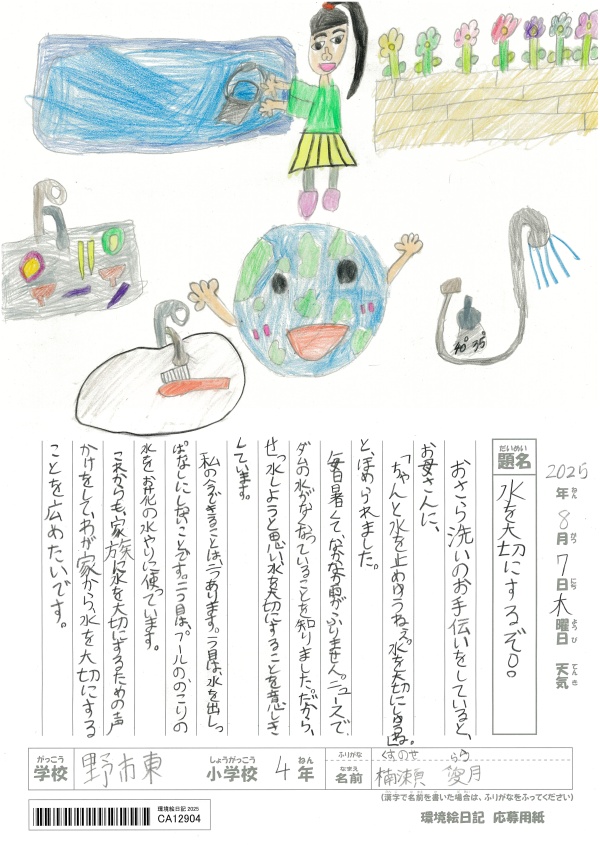 40° 35°
2025年8月7日木曜日 天気
ねん がつ にち ようび てんき
だいめい
題名 水を大切にするぞ○。
おさら洗いのお手伝いをしていると、
お母さんに、
「ちゃんと水を止めようねぇ。水を大切にしようね。」
と、ほめられました。
毎日暑くて、なかなか雨がふりません。ニュースで
ダムの水がなくなっていることを知りました。だから、
せっ水しようと思い、水を大切にすることを意しき
しています。
私の今できることは、二つあります。一つ目は、水を出しっ
ぱなしにしないことです。二つ目は、プールののこりの
水をお花の水やりに使っています。
これからも、家族に水を大切にするための声
かけをして、わが家から、水を大切にする
ことを広めたいです。
がっこう しょうがっこう ねん ふりがな くすのせ
学校 野市東 小学校 4年 なまえ 名前 楠瀬 愛月
(漢字で名前を書いた場合は、ふりがなをふってください)
環境絵日記2025
CA12904
環境絵日記 応募用紙